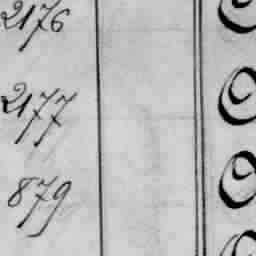 2176
2177
879